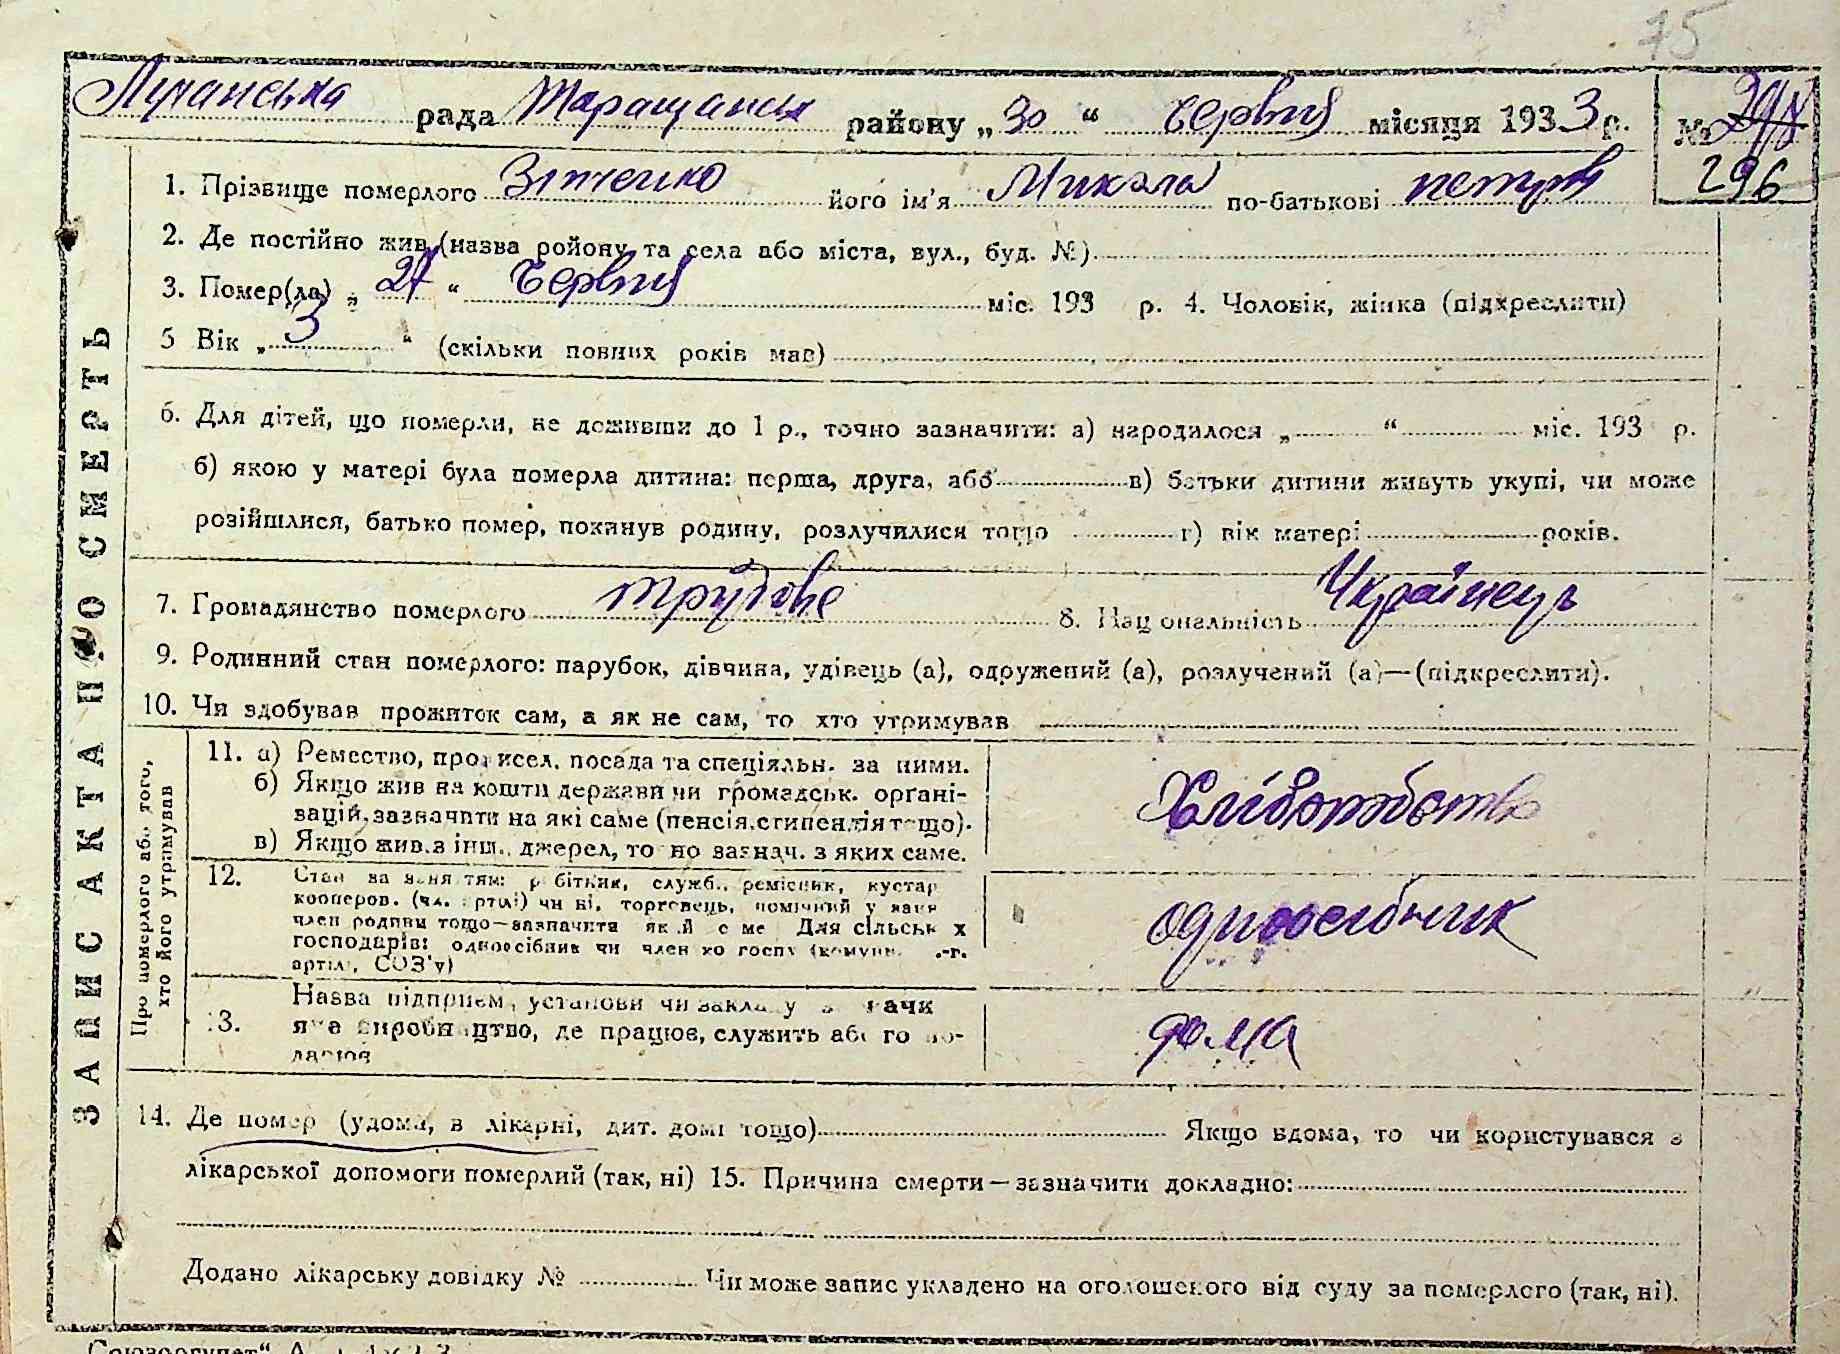 75
Лучанська рада Таращанськ району „30“ червня місяця 1933 р. №
296
1. Прізвище померлого Зінченко його ім'я Микола по-батькові петров
2. Де постійно жив (назва ройону та села або міста, вул., буд. №)
3. Помер(ла) „27“ червня міс. 193 р. 4. Чоловік, жінка (підкреслити)
5 Вік „3“ (скільки повних років мав)
6. Для дітей, що померли, не доживши до 1 р., точно зазначити: а) народилося „ “ міс. 193 р.
б) якою у матері була померла дитина: перша, друга, або в) батьки дитини живуть укупі, чи може
розійшлися, батько помер, покинув родину, розлучилися тощо г) вік матері років.
7. Громадянство померлого трудове 8. Нац ональність Українець
9. Родинний стан померлого: парубок, дівчина, удівець (а), одружений (а), розлучений (а)—(підкреслити).
10. Чи здобував прожиток сам, а як не сам, то хто утримував
ЗАПИС АКТА ПРО СМЕРТЬ
Про померлого або того,
хто його утримував
11. а) Ремество, про исел, посада та спеціяльн. за ними.
б) Якщо жив на кошти держави чи громадськ. органі-
зацій, зазначити на які саме (пенсія, стипендія тощо).
в) Якщо жив з інш. джерел, то но зазнач. з яких саме.
Хліборобство
12. Стан за заняттям: робітник, служб., ремісник, кустар
кооперов. (чл. ртілі) чи ні, торговець, помічний у
член родини тощо—зазначити Для сільськ х
господарів: одноосібник чи член (комуни, .-г.
артілі, СОЗ'у)
одноосібник
13. Назва підприєм, установи чи закладу
виробництво, де працює, служить або го по-
дома
14. Де помер (удома, в лікарні, дит. домі тощо) Якщо вдома, то чи користувався з
лікарської допомоги померлий (так, ні) 15. Причина смерти—зазначити докладно:
Додано лікарську довідку № Чи може запис укладено на оголошеного від суду за померлого (так, ні).